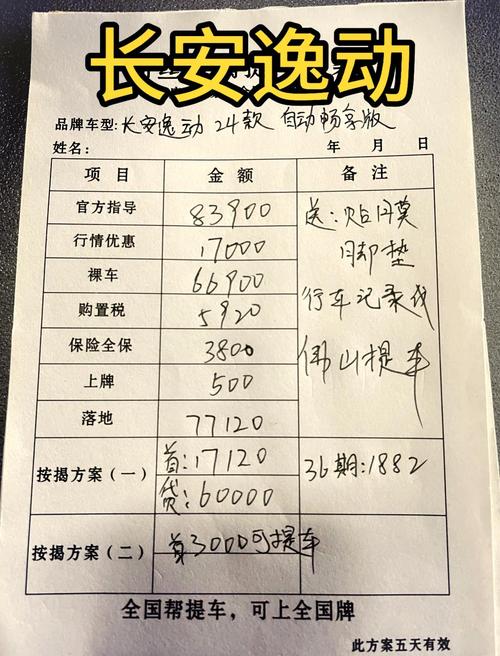 长安逸动
品牌车型: 长安逸动 24款 自动畅享版
姓名: 年 月 日
项目 金额 备注
官方指导 83900 送:贴膜
行情优惠 17000 脚垫
裸车 66900 行车记录仪
购置税 5920
保险全保 3800 佛山提车
上牌 500
落地 77120
按揭方案(一) 首:17120 36期:1882
贷:60000
按揭方案(二) 首3000可提车
全国帮提车,可上全国牌
此方案五天有效